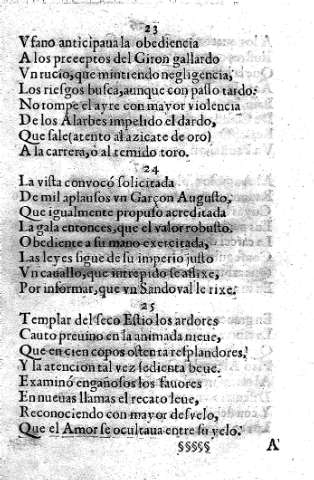 23
Vfano anticipaua la obediencia
A los preceptos del Giron gallardo
Vn rucio, que mintiendo negligencia,
Los riesgos busca, aunque con passo tardo.
No rompe el ayre con mayor violencia
De los Alarbes impelido el dardo,
Que sale (atento al azicate de oro)
A la carrera, ò al temido toro.
24
La vista convocó solicitada
De mil aplausos vn Garçon Augusto,
Que igualmente propuso acreditada
La gala entonces, que el valor robusto.
Obediente a su mano exercitada,
Las leyes sigue de su imperio justo
Vn cauallo, que intrepido se aflixe,
Por informar, que vn Sandoval le rixe.
25
Templar del seco Estio los ardores
Cauto preuino en la animada nieue,
Que en cien copos ostenta resplandores,
Y la atencion tal vez sedienta beue.
Examinó engañosos los fauores
En nueuas llamas el recato leue,
Reconociendo con mayor desvelo,
Que el Amor se ocultaua entre su yelo.
§§§§§ A